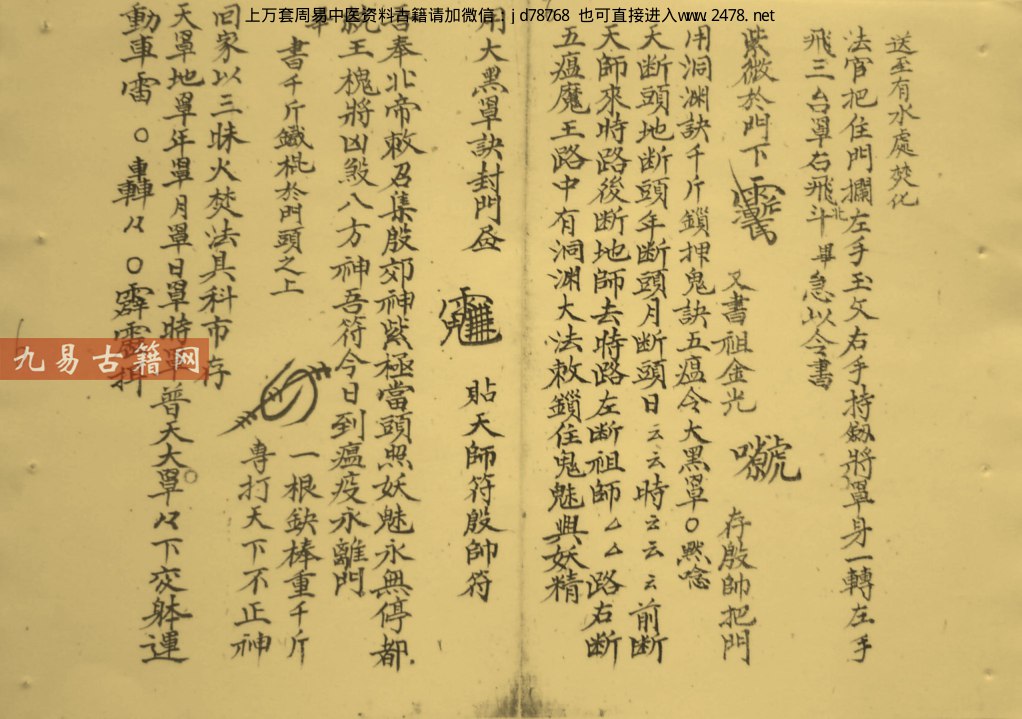 上万套周易中医资料古籍请加微信：jd78768 也可直接进入www.2478.net
送至有水處焚化
法官把住門攔左手玉文右手持劔將罩身一轉左手
飛三台罩右飛斗北畢急以令書
紫微於門下 又書祖金光 存殷帥把門
用洞渊訣千斤鎖押鬼訣五瘟令大黑罩〇黙唸
天断頭地断頭年断頭月断頭日云云時云云云前断
天師來時路後断地師去時路左断祖師厶厶路右断
五瘟魔王路中有洞渊大法敕鎖住鬼魅與妖精
用大黑罩訣封門 貼天師符殷帥符
奉北帝敕召集殷郊神紫極當頭照妖魅永無停都
統王槐將凶煞八方神吾符今日到瘟疫永離門
書千斤鐵棍於門頭之上 一根鉄棒重千斤
專打天下不正神
回家以三昧火焚法具科巿存
天罩地罩年罩月罩日罩時罩普天大罩々下交躰運
動車雷〇轟々〇霹
九易古籍网